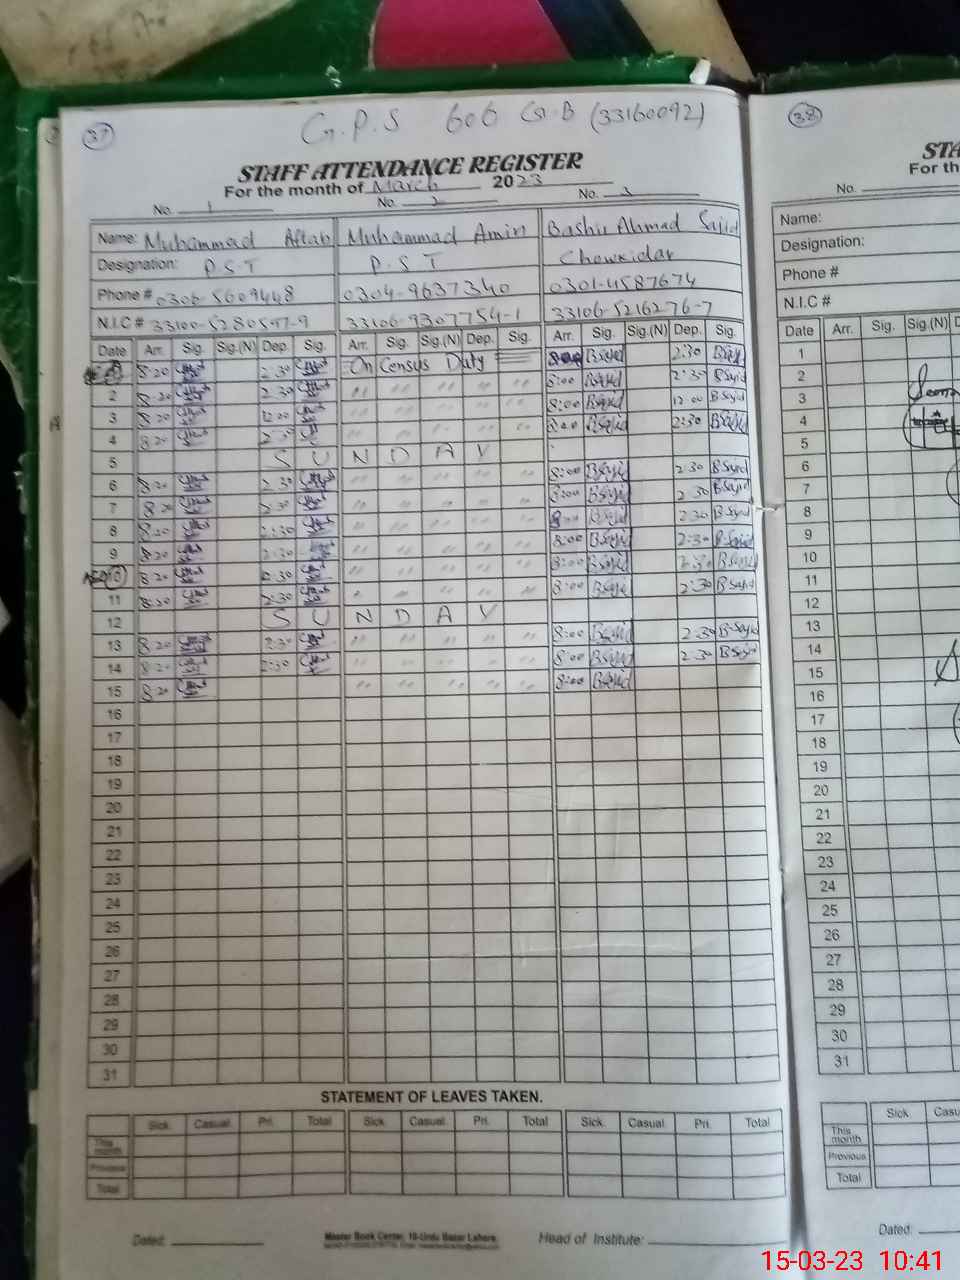 37
G.P.S 606 G.B (33160092)
STAFF ATTENDANCE REGISTER
For the month of March 2023
No. 1 No. 2 No. 3
Name: Muhammad Aftab Muhammad Amin Bashir Ahmad Sajid
Designation: P.S.T P.S.T Chowkidar
Phone # 0306-5609448 0304-9637340 0301-4587674
N.I.C # 33100-5280597-9 33106-9307754-1 33106-5216276-7
Date Arr. Sig. Sig.(N) Dep. Sig. Arr. Sig. Sig.(N) Dep. Sig. Arr. Sig. Sig.(N) Dep. Sig.
8 20 2 30 On Census Duty 8:00 B Sajid 2:30 B Sajid
2 8 20 2 30 " " " " " 8:00 B Sajid 2:30 B Sajid
3 8 20 12 00 " " " " " 8:00 B Sajid 12 00 B Sajid
4 8 20 2 30 " " " " " 8:00 B Sajid 2:30 B Sajid
5 S U N D A Y
6 8 20 2 30 " " " " " 8:00 B Sajid 2 30 B Sajid
7 8 20 2 30 " " " " " 8:00 B Sajid 2 30 B Sajid
8 8 20 2:30 " " " " " 8:00 B Sajid 2 30 B Sajid
9 8 20 2:30 " " " " " 8:00 B Sajid 2:30 B Sajid
10 8 20 2 30 " " " " " 8:00 B Sajid 2:30 B Sajid
11 8 20 2:30 " " " " " 8:00 B Sajid 2:30 B Sajid
12 S U N D A Y
13 8 20 2:30 " " " " " 8:00 B Sajid 2 30 B-Sajid
14 8 20 2:30 " " " " " 8:00 B Sajid 2 30 B Sajid
15 8 20 " " " " " 8:00 B Sajid
16
17
18
19
20
21
22
23
24
25
26
27
28
29
30
31
STATEMENT OF LEAVES TAKEN.
Sick. Casual. Pri. Total Sick. Casual. Pri. Total Sick. Casual. Pri. Total
This month
Previous
Total
Dated: Master Book Center, 18-Urdu Bazar Lahore. Head of Institute:
38
STA
For th
No.
Name:
Designation:
Phone #
N.I.C #
Date Arr. Sig. Sig.(N) D
1
2
3
4
5
6
7
8
9
10
11
12
13
14
15
16
17
18
19
20
21
22
23
24
25
26
27
28
29
30
31
Sick Casu
This month
Previous
Total
Dated:
15-03-23 10:41